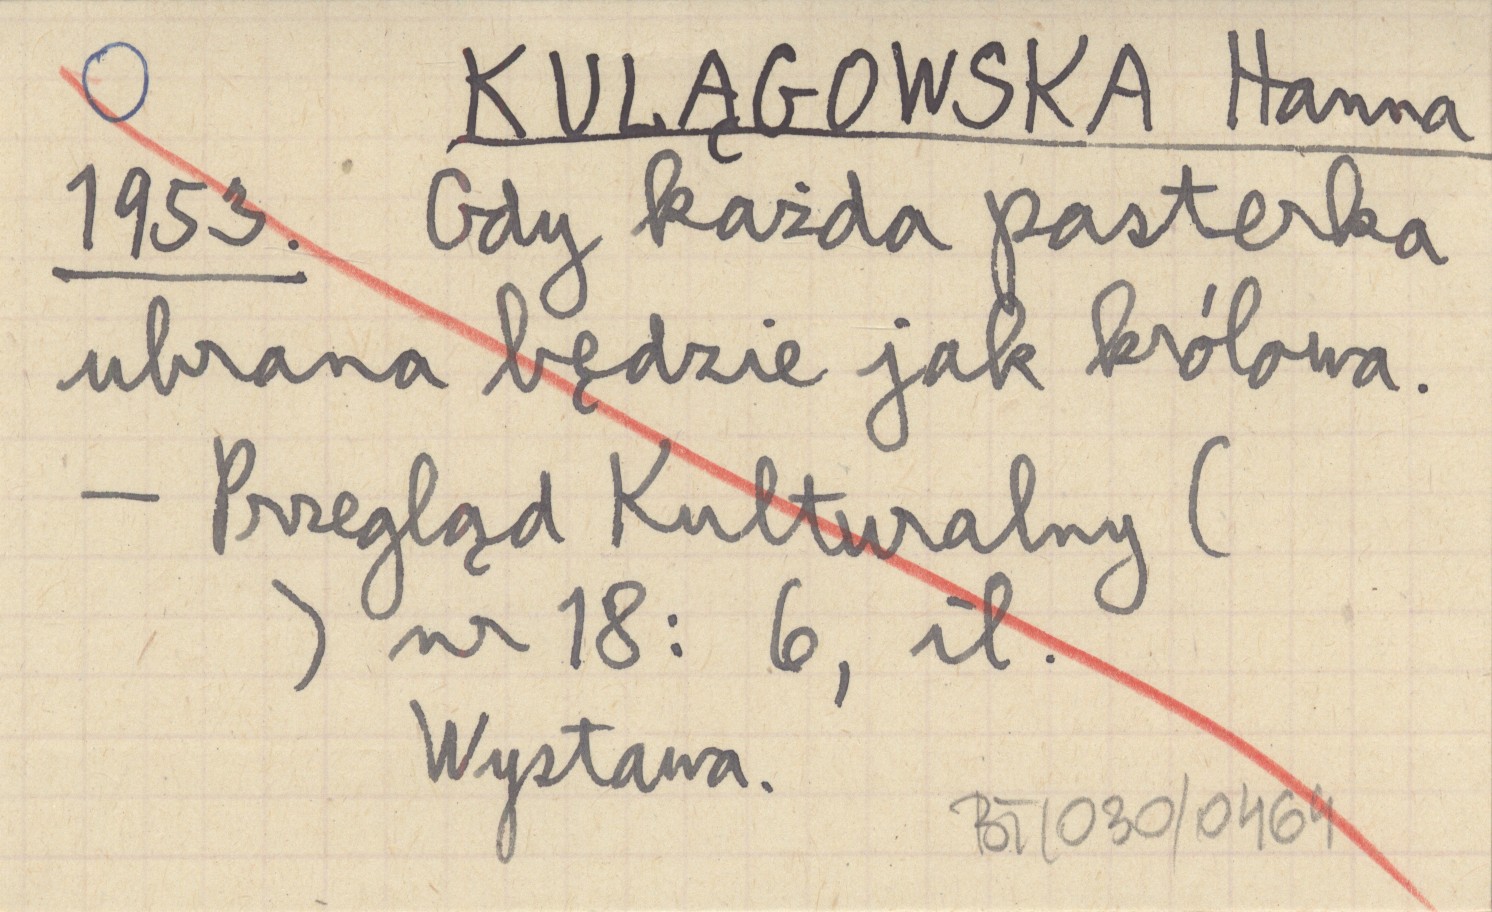 KULĄGOWSKA Hanna
1953. Gdy każda pasterka
ubrana będzie jak królowa.
— Przegląd Kulturalny (
) nr 18: 6, il.
Wystawa.
BT/030/0464